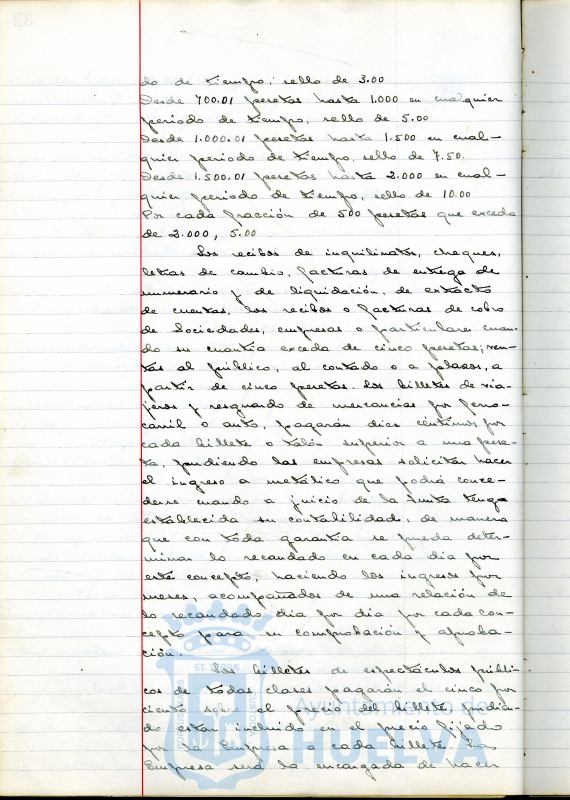 do de tiempo; sello de 3.00
Desde 700.01 pesetas hasta 1.000 en cualquier
periodo de tiempo, sello de 5.00
Desde 1.000.01 pesetas hasta 1.500 en cual-
quier periodo de tiempo, sello de 7.50.
Desde 1.500.01 pesetas hasta 2.000 en cual-
quier periodo de tiempo, sello de 10.00
Por cada fracción de 500 pesetas que exceda
de 2.000, 5.00
Los recibos de inquilinatos, cheques,
letras de cambio, facturas de entrega de
numerario y de liquidación, de extracto
de cuentas, los recibos o facturas de cobro
de Sociedades, empresas o particulares cuan-
do su cuantía exceda de cinco pesetas; ven-
tas al público, al contado o a plazos, a
partir de cinco pesetas. Los billetes de via-
jeros y resguardo de mercancías por ferro-
carril o auto, pagarán diez céntimos por
cada billete o talón superior a una pese-
ta, pudiendo las empresas solicitar hacer
el ingreso a metálico que podrá conce-
derse cuando a juicio de la Junta tenga
establecida su contabilidad, de manera
que con toda garantía se pueda deter-
minar lo recaudado en cada día por
este concepto, haciendo los ingresos por
meses, acompañados de una relación de
lo recaudado día por día por cada con-
cepto para su comprobación y aproba-
ción.
Los billetes de espectáculos públi-
cos de todas clases pagarán el cinco por
ciento sobre el precio del billete pudien-
do estar incluido en el precio fijado
por la Empresa a cada billete. La
Empresa será la encargada de hacer
Ayuntamiento de
HUELVA